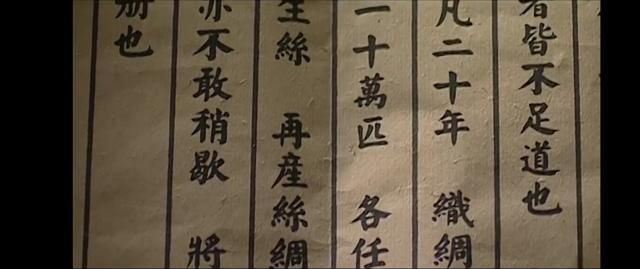 者皆不足道也
凡二十年 織綢
一十萬匹 各任
生絲 再產絲綢
亦不敢稍歇 將
册也